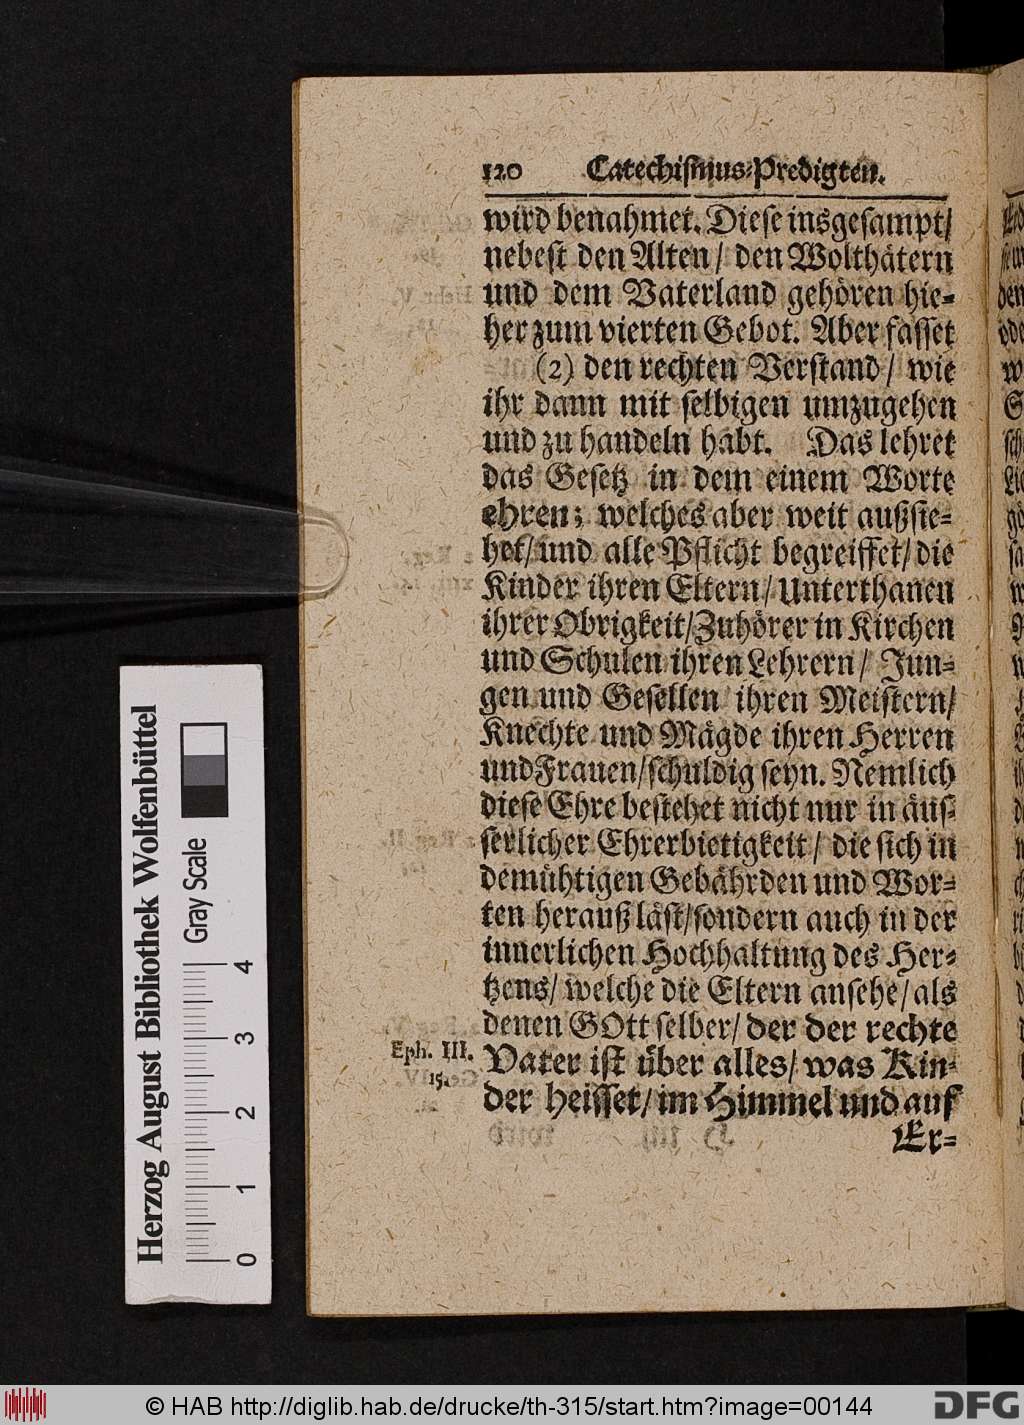 120 Catechiſmus-Predigten.
wird benahmet. Dieſe insgeſampt/
nebeſt den Alten / den Wolthätern
und dem Vaterland gehören hie-
her zum vierten Gebot. Aber faſſet
(2) den rechten Verſtand / wie
ihr dann mit ſelbigen umzugehen
und zu handeln habt. Das lehret
das Geſetz in dem einem Worte
ehren; welches aber weit außſie-
het/ und alle Pflicht begreiffet/ die
Kinder ihren Eltern/ Unterthanen
ihrer Obrigkeit/ Zuhörer in Kirchen
und Schulen ihren Lehrern / Jun-
gen und Geſellen ihren Meiſtern/
Knechte und Mägde ihren Herren
und Frauen/ ſchuldig ſeyn. Nemlich
dieſe Ehre beſtehet nicht nur in äuſ-
ſerlicher Ehrerbietigkeit / die ſich in
demühtigen Gebährden und Wor-
ten herauß läſt/ ſondern auch in der
innerlichen Hochhaltung des Her-
tzens/ welche die Eltern anſehe/ als
denen GOtt ſelber/ der der rechte
Eph. III. Vater iſt über alles/ was Kin-
15. der heiſſet/ im Himmel und auf
Er-
Herzog August Bibliothek Wolfenbüttel
Gray Scale
0 1 2 3 4
© HAB http://diglib.hab.de/drucke/th-315/start.htm?image=00144
DFG